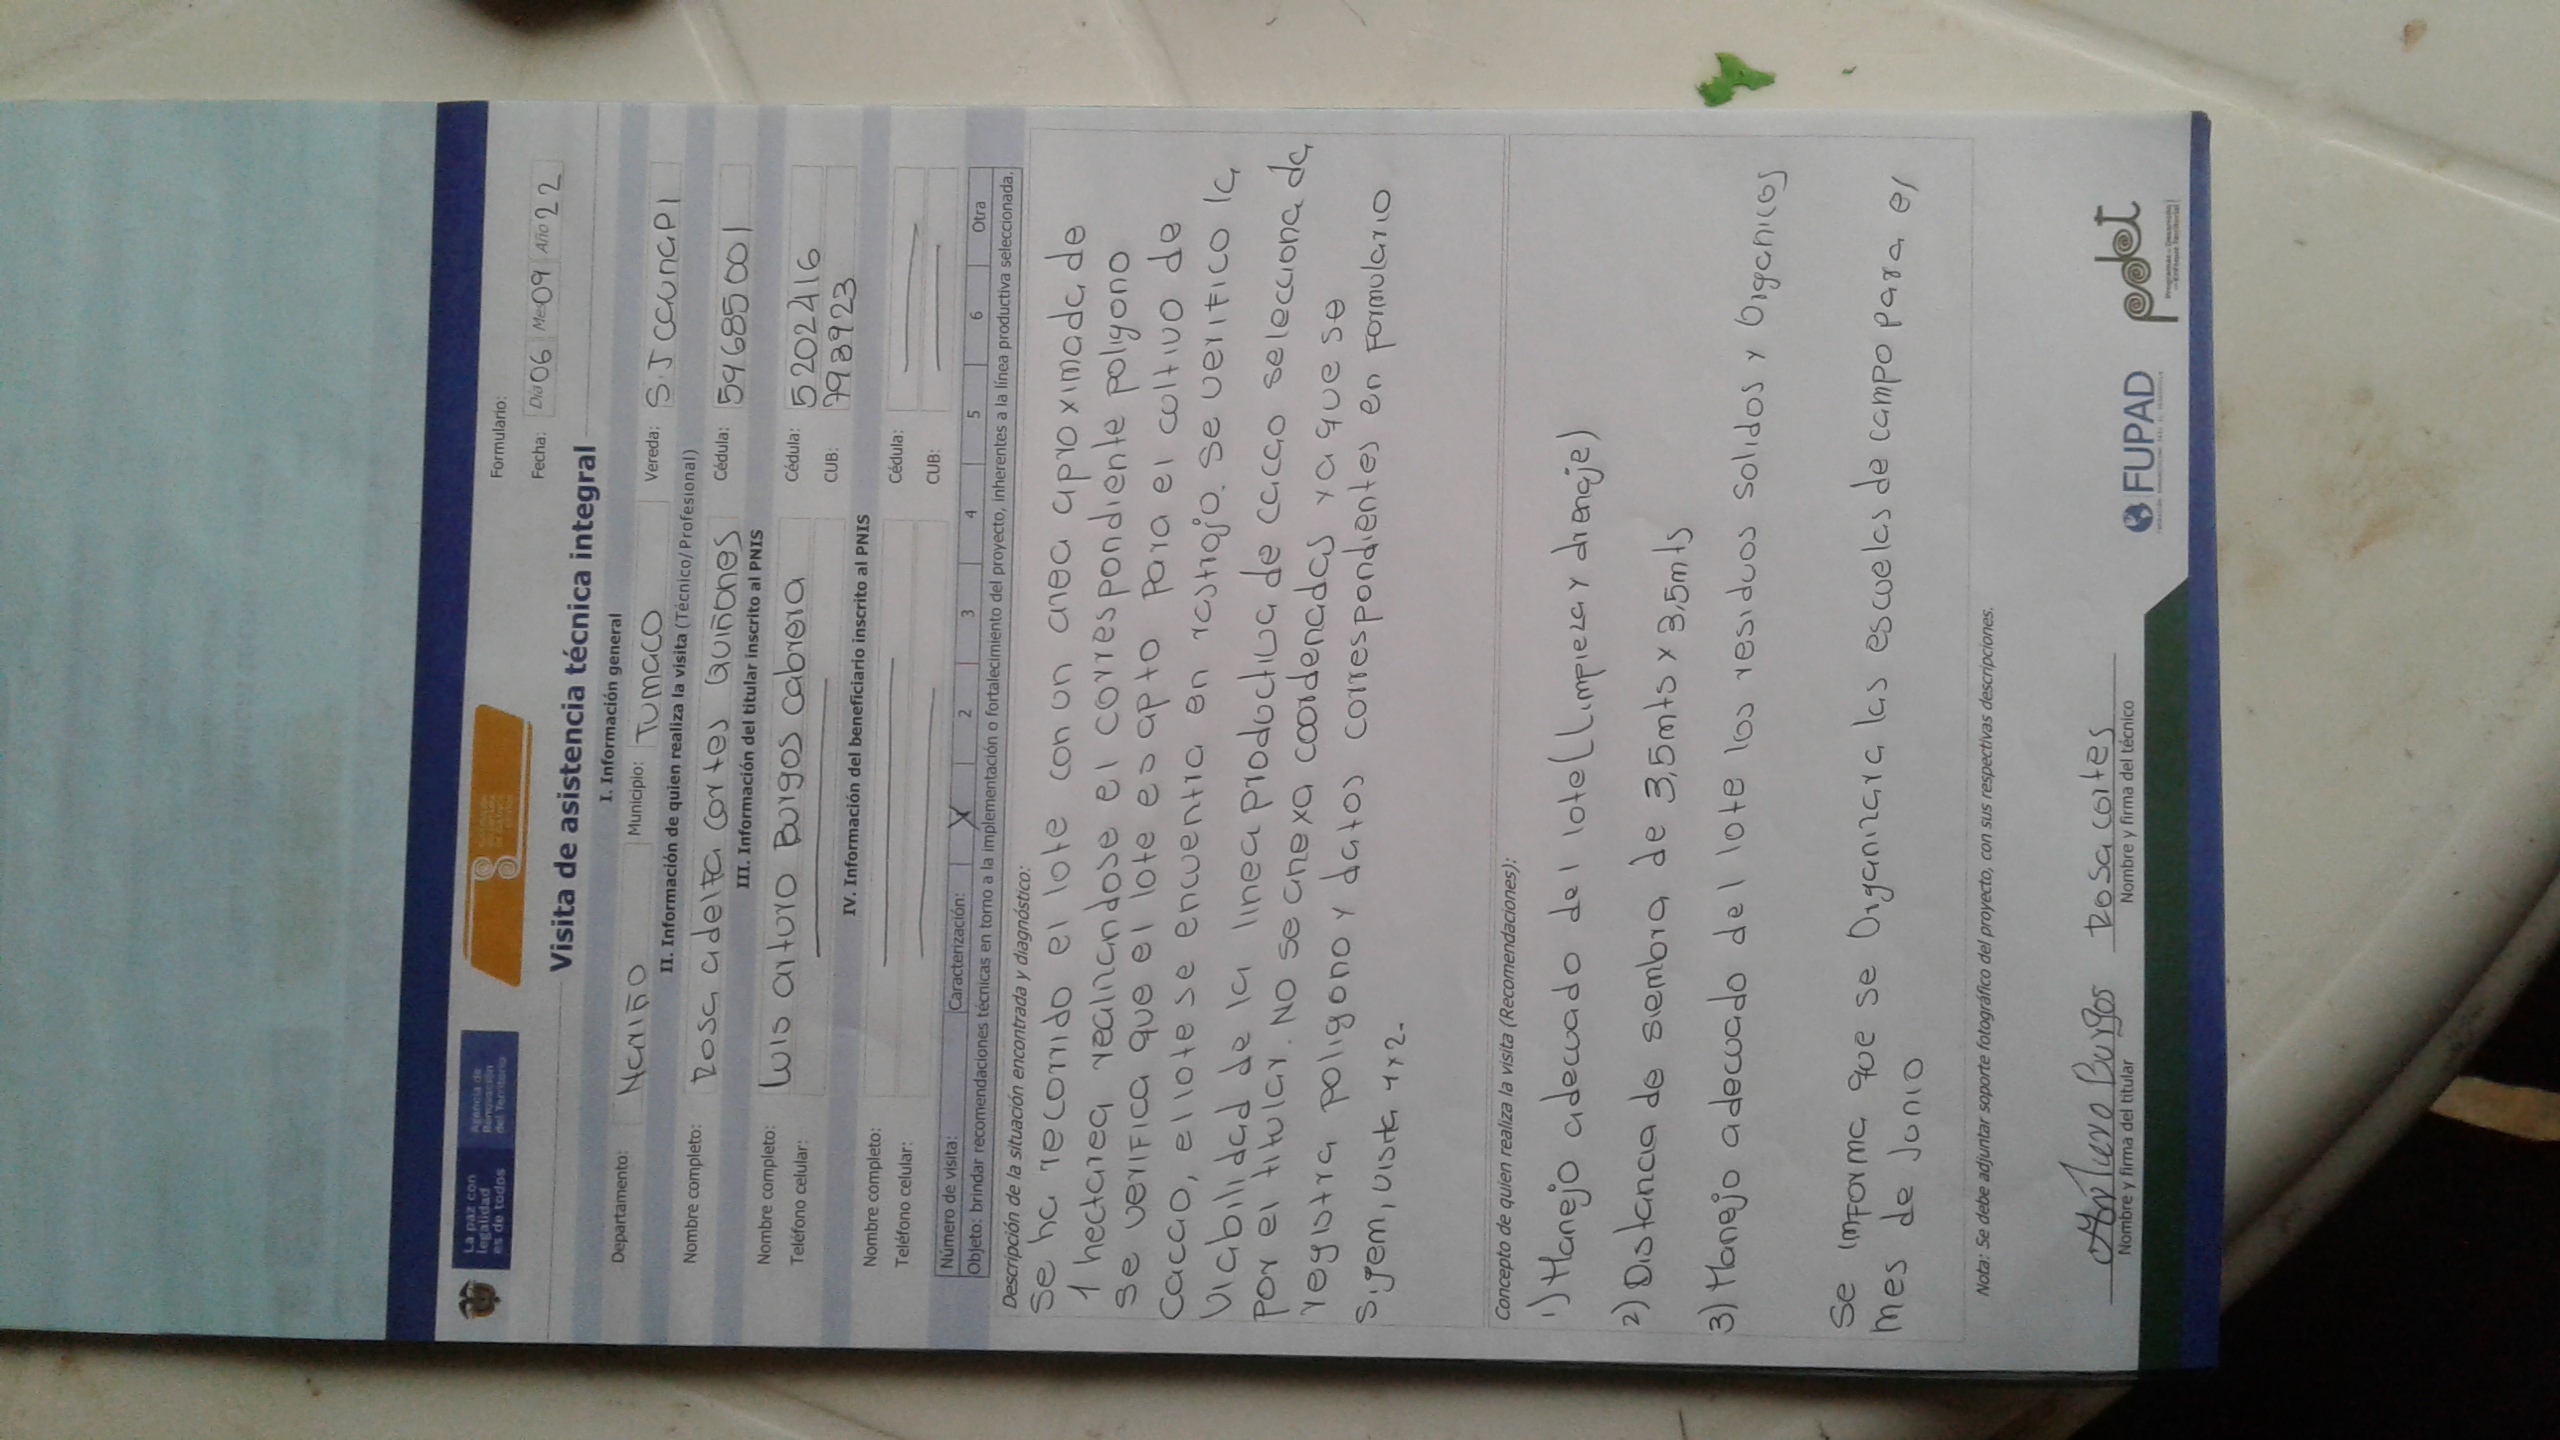 La paz con
legalidad
es de todos
Agencia de
Renovación
del Territorio
Formulario:
Fecha: Día 06 Mes 09 Año 22
Visita de asistencia técnica integral
I. Información general
Departamento: Nariño Municipio: Tumaco Vereda: S.J Caunapi
II. Información de quien realiza la visita (Técnico/Profesional)
Nombre completo: Rosa adelta cortes Quiñones Cédula: 59685001
III. Información del titular inscrito al PNIS
Nombre completo: Luis arturo Burgos cabrera Cédula: 5202416
Teléfono celular: CUB: 7983923
IV. Información del beneficiario inscrito al PNIS
Nombre completo: Cédula:
Teléfono celular: CUB:
Número de visita: Caracterización: X 2 3 4 5 6 Otra
Objeto: brindar recomendaciones técnicas en torno a la implementación o fortalecimiento del proyecto, inherentes a la línea productiva seleccionada.
Descripción de la situación encontrada y diagnóstico:
Se ha recorrido el lote con un area aproximada de
1 hectarea realnandose el correspondiente poligono
Se verifica que el lote es apto para el cultivo de
cacao, el lote se encuentra en rastrojo. Se verifico la
viabilidad de la linea productiva de cacao seleccionada
por el titular. No se anexa coordenadas ya que se
registra poligono y datos correspondientes en formulario
Sijem, visita 1 y 2.
Concepto de quien realiza la visita (Recomendaciones):
1) Manejo adecuado del lote (Limpieza y drenaje)
2) Distancia de siembra de 3,5mts x 3,5mts
3) Manejo adecuado del lote los residuos solidos y organicos
Se informa que se organizara las escuelas de campo para el
mes de Junio
Nota: Se debe adjuntar soporte fotográfico del proyecto, con sus respectivas descripciones.
Arturo Burgos Rosa cortes
Nombre y firma del titular Nombre y firma del técnico
FUPAD
pdet